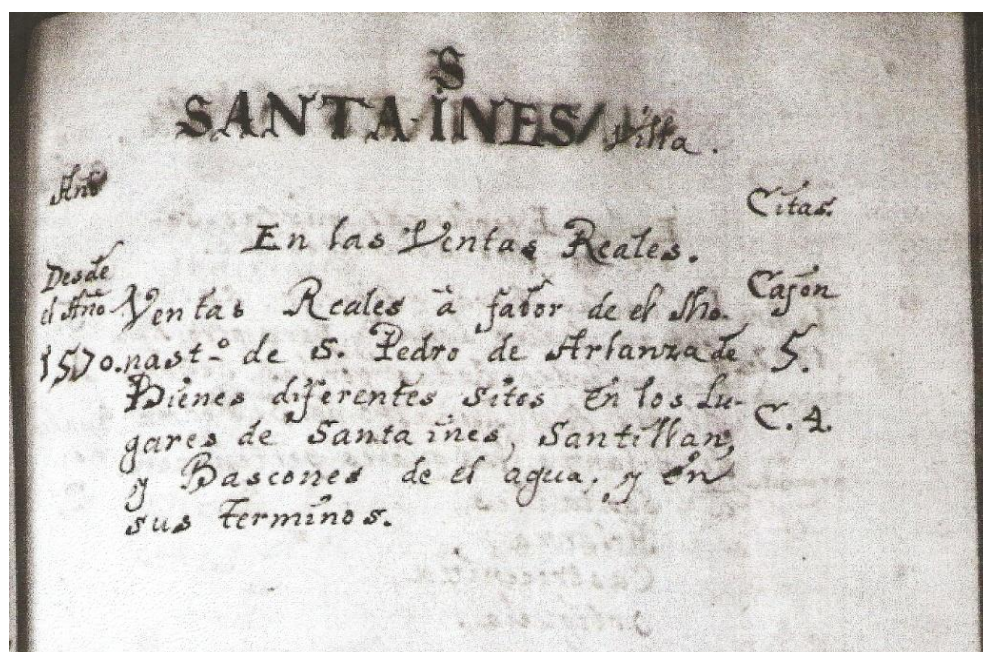 S
SANTA INES/ Villa.
Año
Citas.
En las Ventas Reales.
Desde
el Año
1570.
Ventas Reales à fabor de el Mo-
nast.º de S. Pedro de Arlanza de
Bienes diferentes sitos en los Lu-
gares de Santa ines, Santillan,
y Bascones de el agua, y en
sus terminos.
Cajon
5.
C. 4.